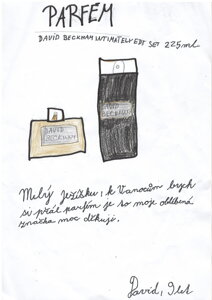 PARFÉM
DAVID BECKHAM INTIMATELY EDT SET 225ml
DAVID
BECKHAM
DAVID
BECKHAM
Milý Ježíšku, k Vanocům bych
si přál parfém je to moje oblíbená
značka moc děkuji.
David, 9let